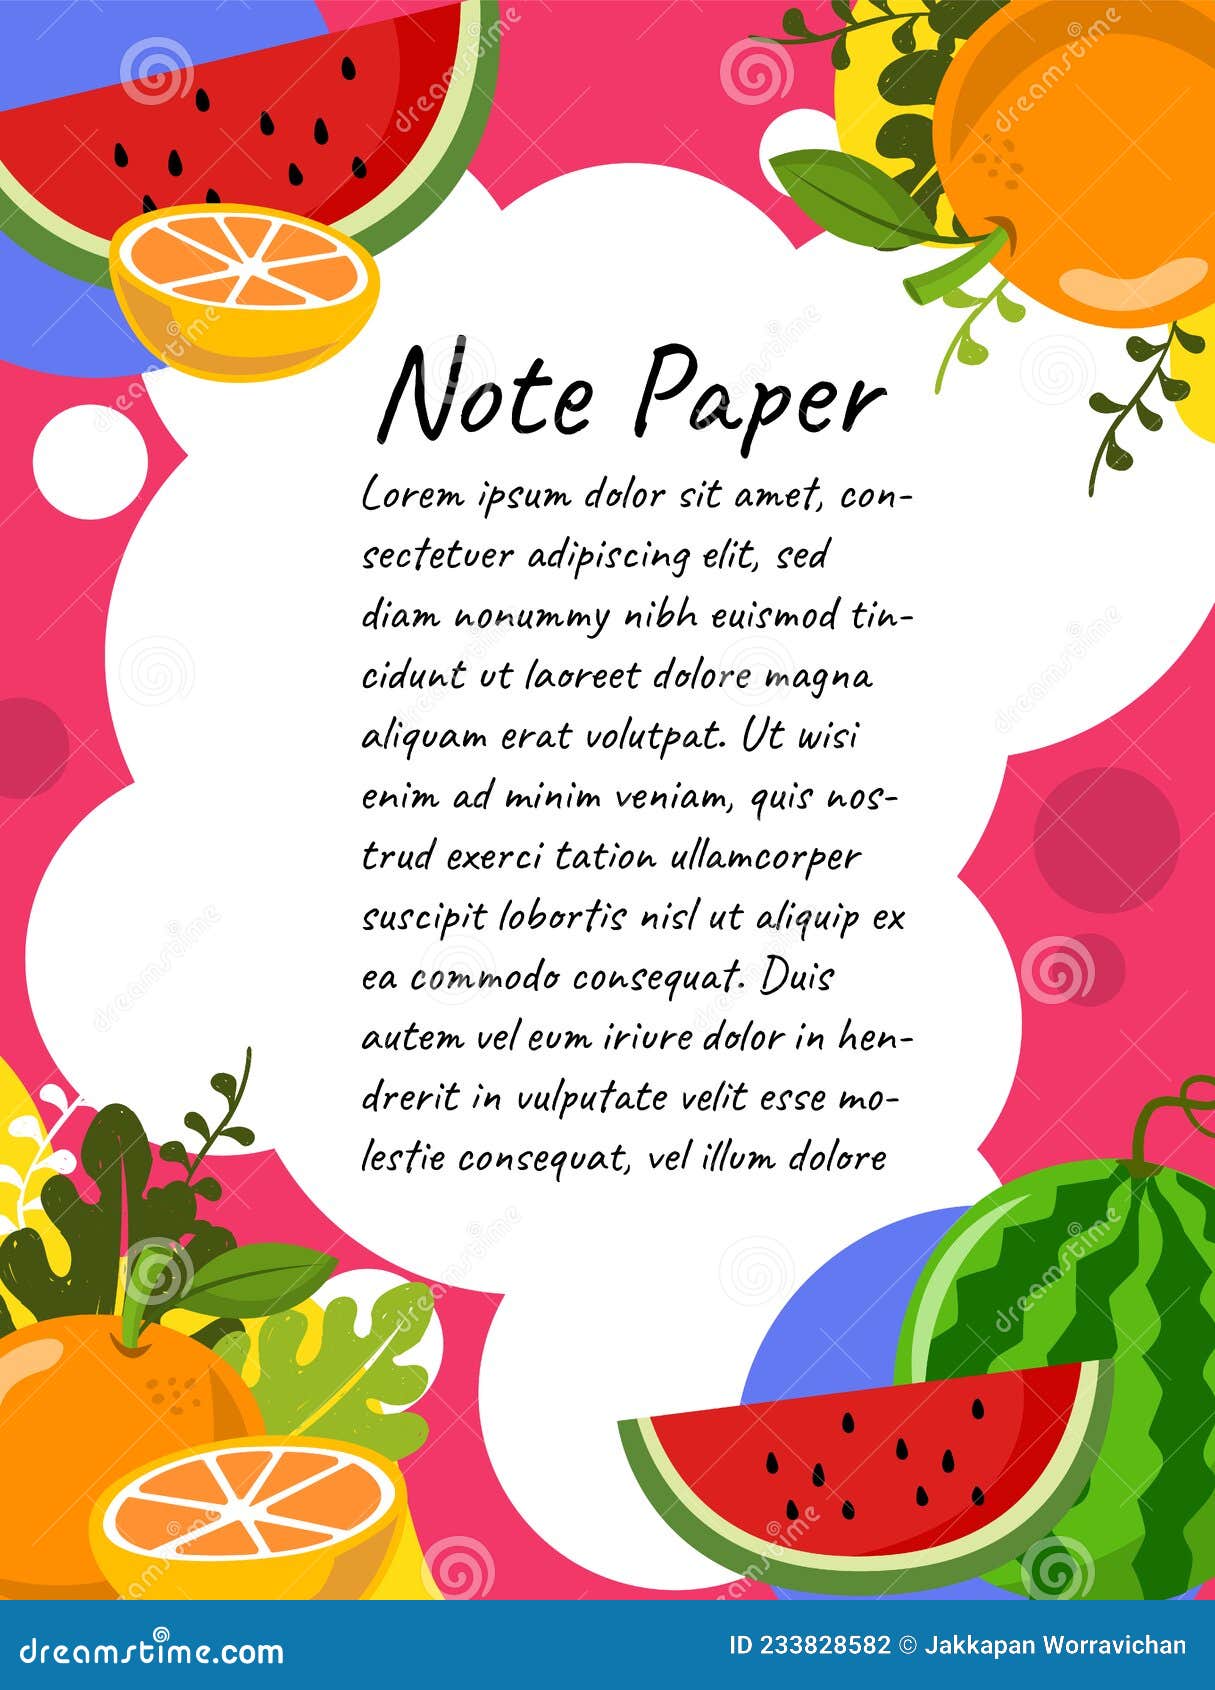 Note Paper
Lorem ipsum dolor sit amet, con-
sectetuer adipiscing elit, sed
diam nonummy nibh euismod tin-
cidunt ut laoreet dolore magna
aliquam erat volutpat. Ut wisi
enim ad minim veniam, quis nos-
trud exerci tation ullamcorper
suscipit lobortis nisl ut aliquip ex
ea commodo consequat. Duis
autem vel eum iriure dolor in hen-
drerit in vulputate velit esse mo-
lestie consequat, vel illum dolore
dreamstime.com
ID 233828582 © Jakkapan Worravichan